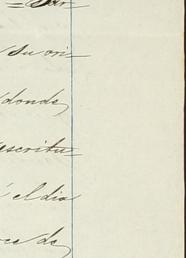 su ori-
donde
escritu-
el dia
ce de